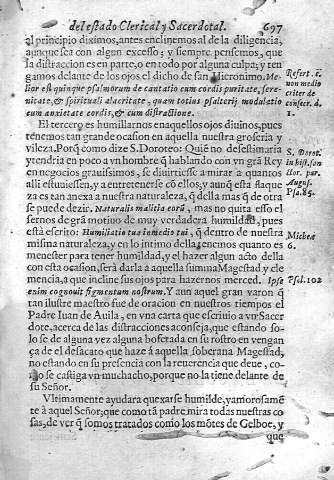 del estado Clerical y Sacerdotal. 697
al principio diximos, antes enclinemos al de la diligencia,
aunque sea con algun excesso: y siempre pensemos, que
la distraccion es en parte, o en todo por alguna culpa; y ten
gamos delante de los ojos el dicho de san Hieronimo. Me
lior est quinque psalmorum de cantatio cum cordis puritate, sere-
nitate, & spirituali alacritate, quam totius psalterij modulatio
cum anxietate cordis, & cum distractione.
Refert. c.
non medio
criter de
consecr. d.
1.
El tercero es humillarnos en aquellos ojos diuinos, pues
tenemos tan grande ocasion en aquella nuestra groseria y
vileza. Porq̃ como dize S. Doroteo: Quiẽ no desestimaria
y tendria en poco a vn hombre q̃ hablando con vn grã Rey
en negocios grauissimos, se diuirtiesse a mirar a quantos
alli estuuiessen, y a entretenerse cõ ellos; y aunq̃ esta flaque
za es tan anexa a nuestra naturaleza, q̃ della mas q̃ de otra
se puede dezir. Naturalis malitia eorũ, mas no quita esso el
sernos de grã motiuo de muy verdadera humildad, pues
està escrito: Humiliatio tua in medio tui, q̃ dentro de nuestra
misma naturaleza, y en lo intimo della tenemos quanto es
menester para tener humildad, y el hazer algun acto della
con esta ocasion, serà darla a aquella summa Magestad y cle
mencia, a que incline sus ojos para hazernos merced. Ipse
enim cognouit figmentum nostrum. Y aun aquel gran varon q̃
tan ilustre maestro fue de oracion en nuestros tiempos el
Padre Iuan de Auila, en vna carta que escriuio a vn Sacer
dote, acerca de las distracciones aconseja, que estando so-
lo se dè alguna vez alguna bofetada en su rostro en vengan
ça de el desacato que haze à aquella soberana Magestad,
no estando en su presencia con la reuerencia que deue, co-
mo se castiga vn muchacho, porque no la tiene delante de
su Señor.
S. Dorot.
in
Pſa. 85.
Michea
6.
Psal. 102
Vltimamente ayudara quexarse humilde, y amorosamẽ
te à aquel Señor, que como tã padre mira todas nuestras co
sas, de ver q̃ somos tratados como los mõtes de Gelboe, y
que